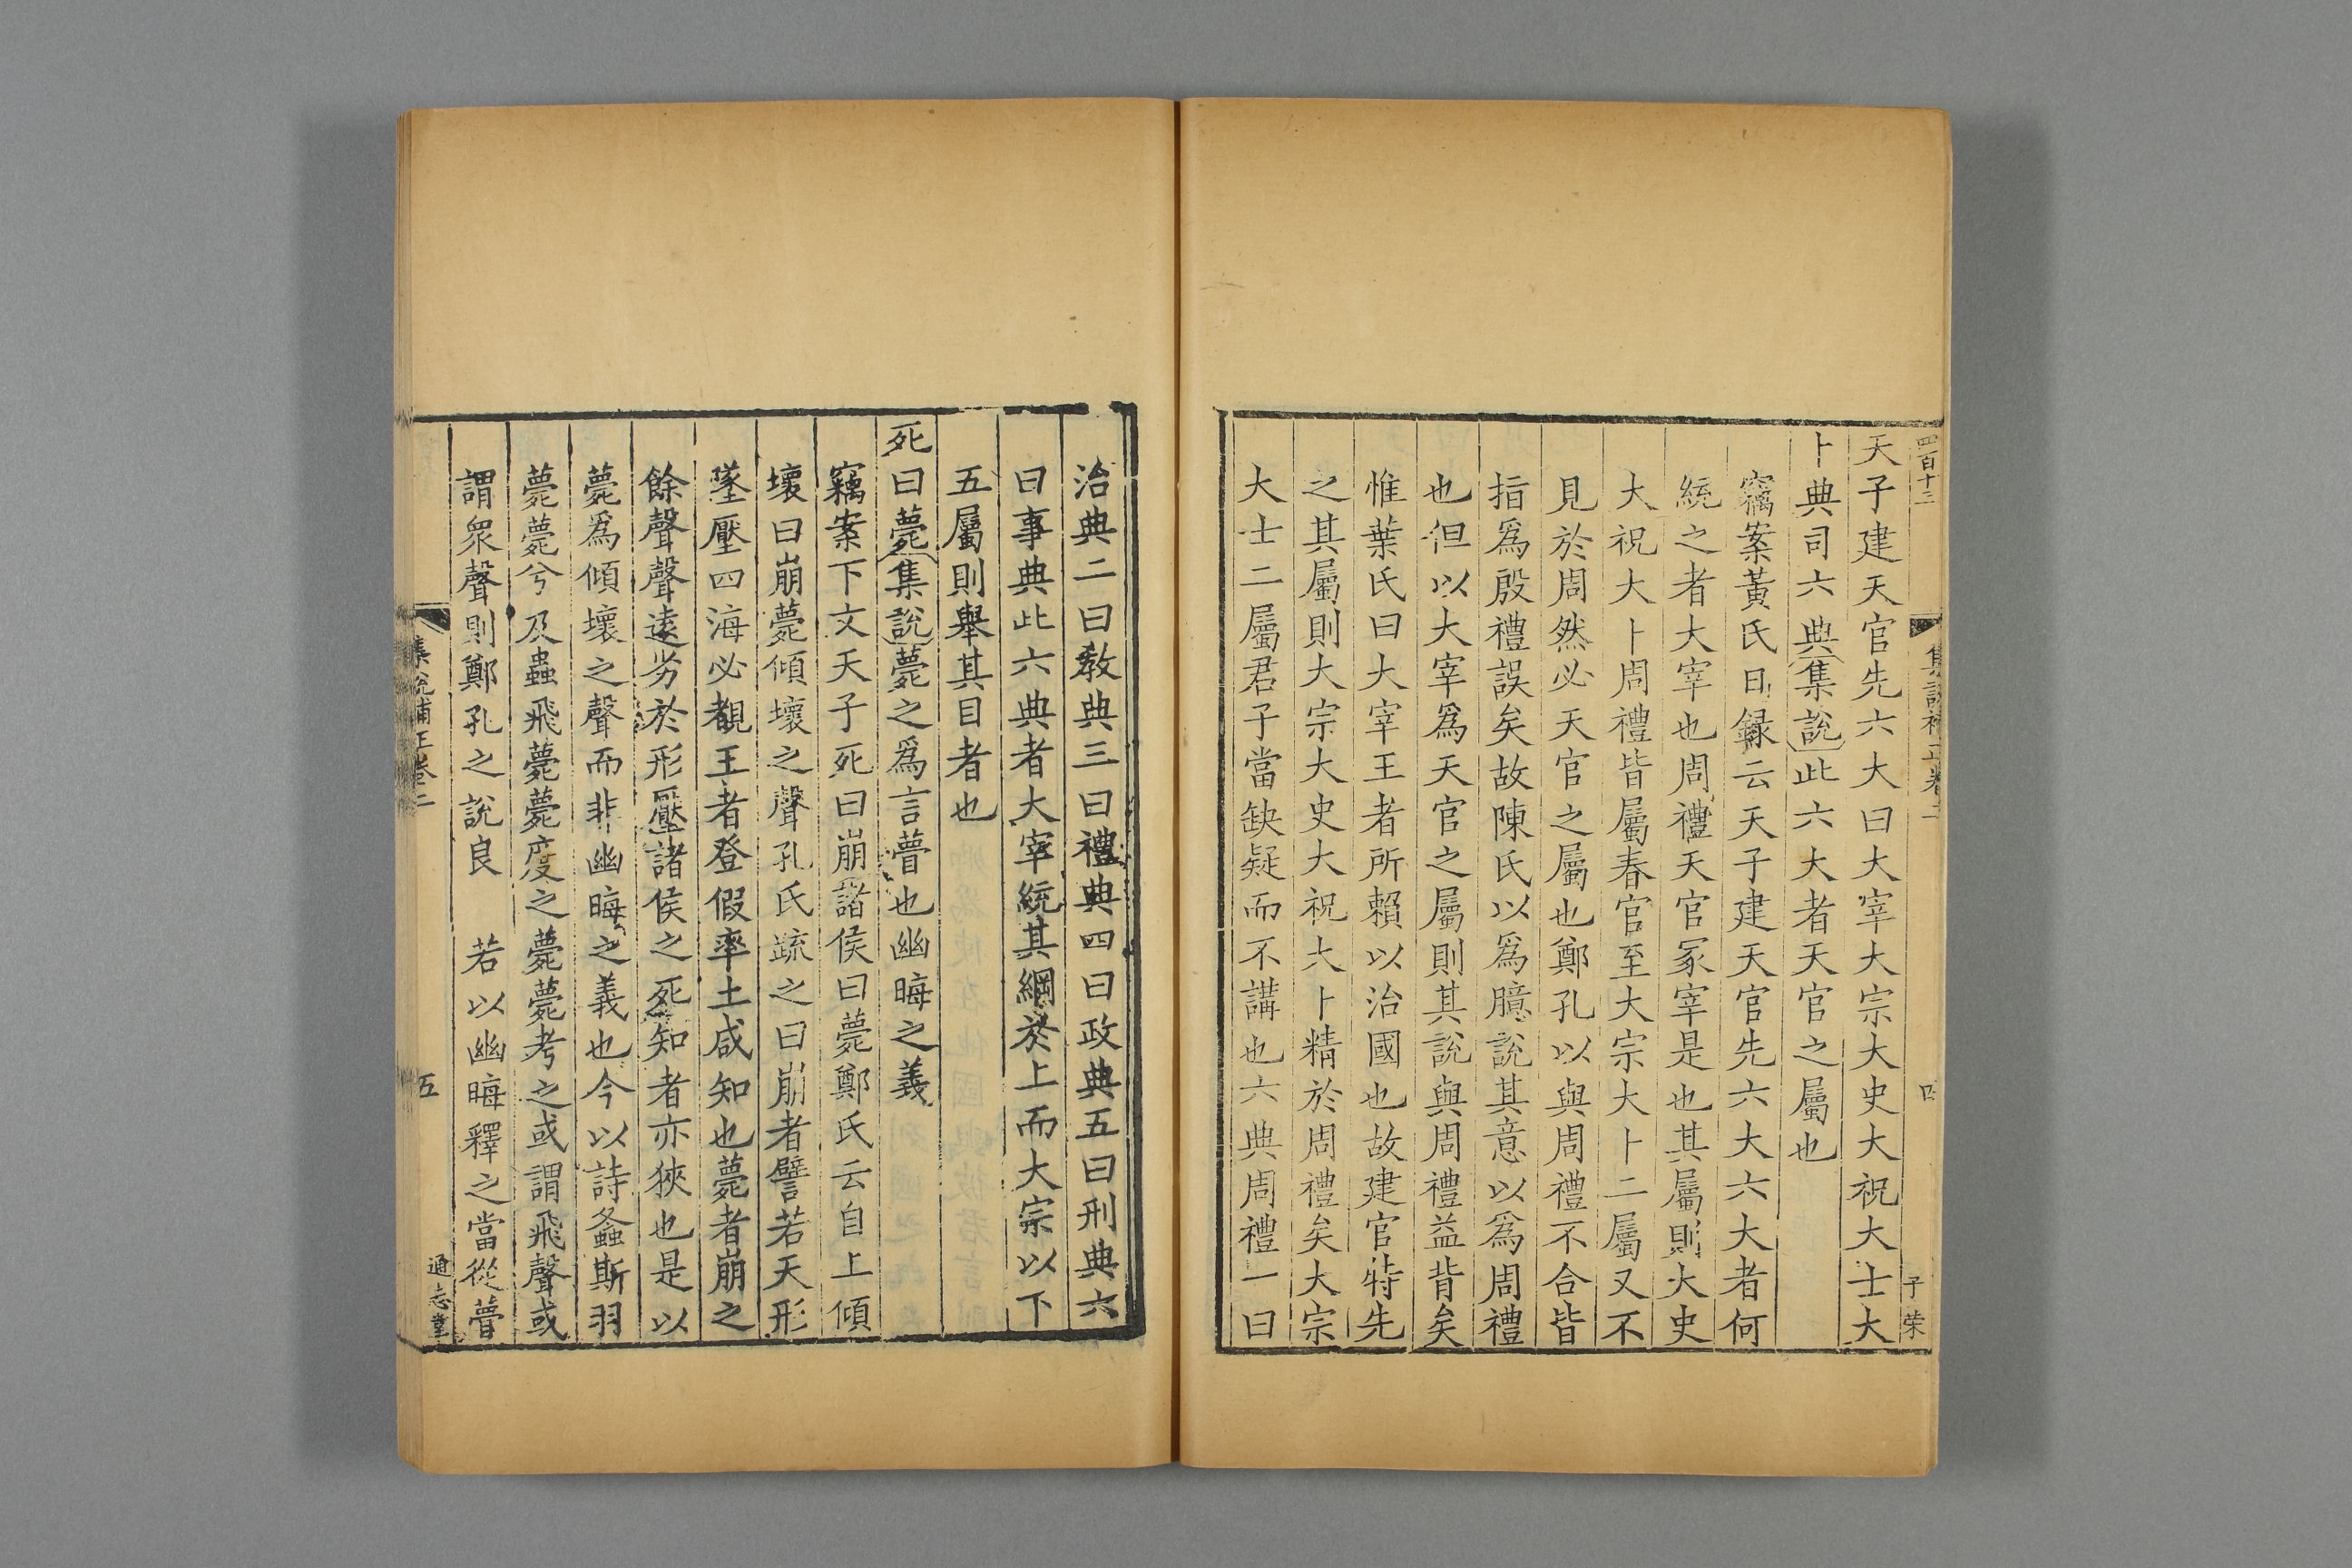 四百十三
集說補正卷二
四
子榮
天子建天官先六大曰大宰大宗大史大祝大士大
卜典司六典集說此六大者天官之屬也
竊案黃氏日録云天子建天官先六大六大者何
統之者大宰也周禮天官冢宰是也其屬則大史
大祝大卜周禮皆屬春官至大宗大卜二屬又不
見於周然必天官之屬也鄭孔以與周禮不合皆
指爲殷禮誤矣故陳氏以爲臆說其意以爲周禮
也但以大宰爲天官之屬則其說與周禮益背矣
惟葉氏曰大宰王者所賴以治國也故建官特先
之其屬則大宗大史大祝大卜精於周禮矣大宗
大士二屬君子當缺疑而不講也六典周禮一曰
治典二曰教典三曰禮典四曰政典五曰刑典六
曰事典此六典者大宰統其綱於上而大宗以下
五屬則舉其目者也
死曰薨集說薨之爲言瞢也幽晦之義
竊案下文天子死曰崩諸侯曰薨鄭氏云自上傾
壞曰崩薨傾壞之聲孔氏疏之曰崩者譬若天形
墜壓四海必覩王者登假率土咸知也薨者崩之
餘聲聲遠劣於形壓諸侯之死知者亦狹也是以
薨爲傾壞之聲而非幽晦之義也今以詩螽斯羽
薨薨兮及蟲飛薨薨度之薨薨考之或謂飛聲或
謂眾聲則鄭孔之說良　若以幽晦釋之當從瞢
集說補正卷二
五
通志堂